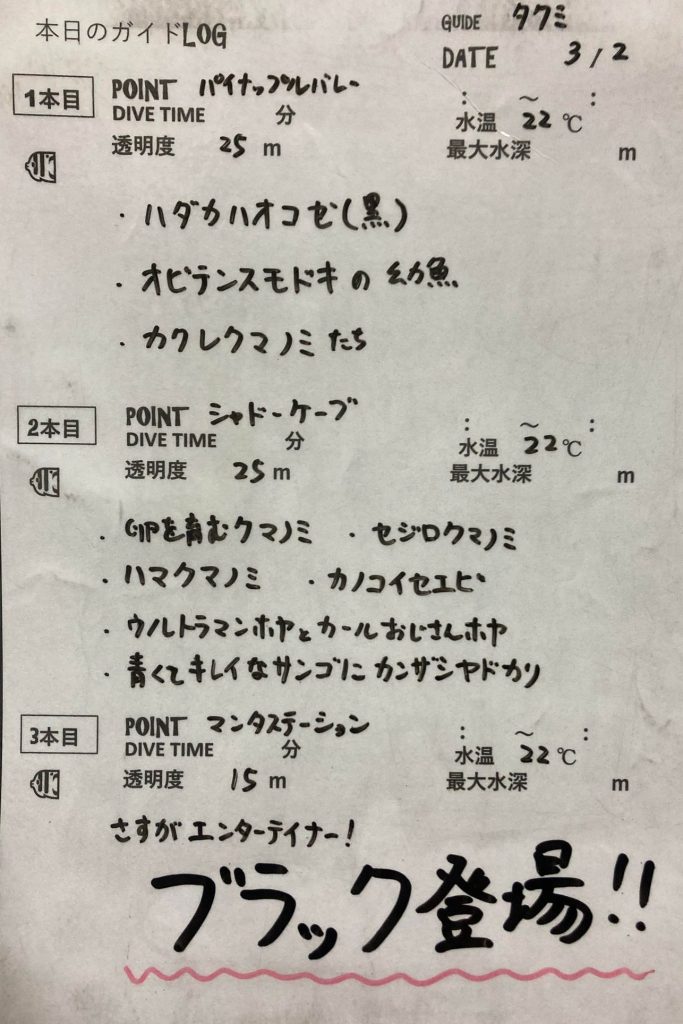 本日のガイドLOG
GUIDE タクミ
DATE 3/2
1本目 POINT パイナップルバレー
DIVE TIME 分 : ～ :
水温 22℃
透明度 25 m 最大水深 m
・ハダカハオコゼ(黒)
・オビテンスモドキの幼魚
・カクレクマノミたち
2本目 POINT シャドーケーブ
DIVE TIME 分 : ～ :
水温 22℃
透明度 25 m 最大水深 m
・卵を育むクマノミ ・セジロクマノミ
・ハマクマノミ ・カノコイセエビ
・ウルトラマンホヤとカールおじさんホヤ
・青くてキレイなサンゴにカンザシヤドカリ
3本目 POINT マンタステーション
DIVE TIME 分 : ～ :
水温 22℃
透明度 15 m 最大水深 m
さすがエンターテイナー!
ブラック登場!!